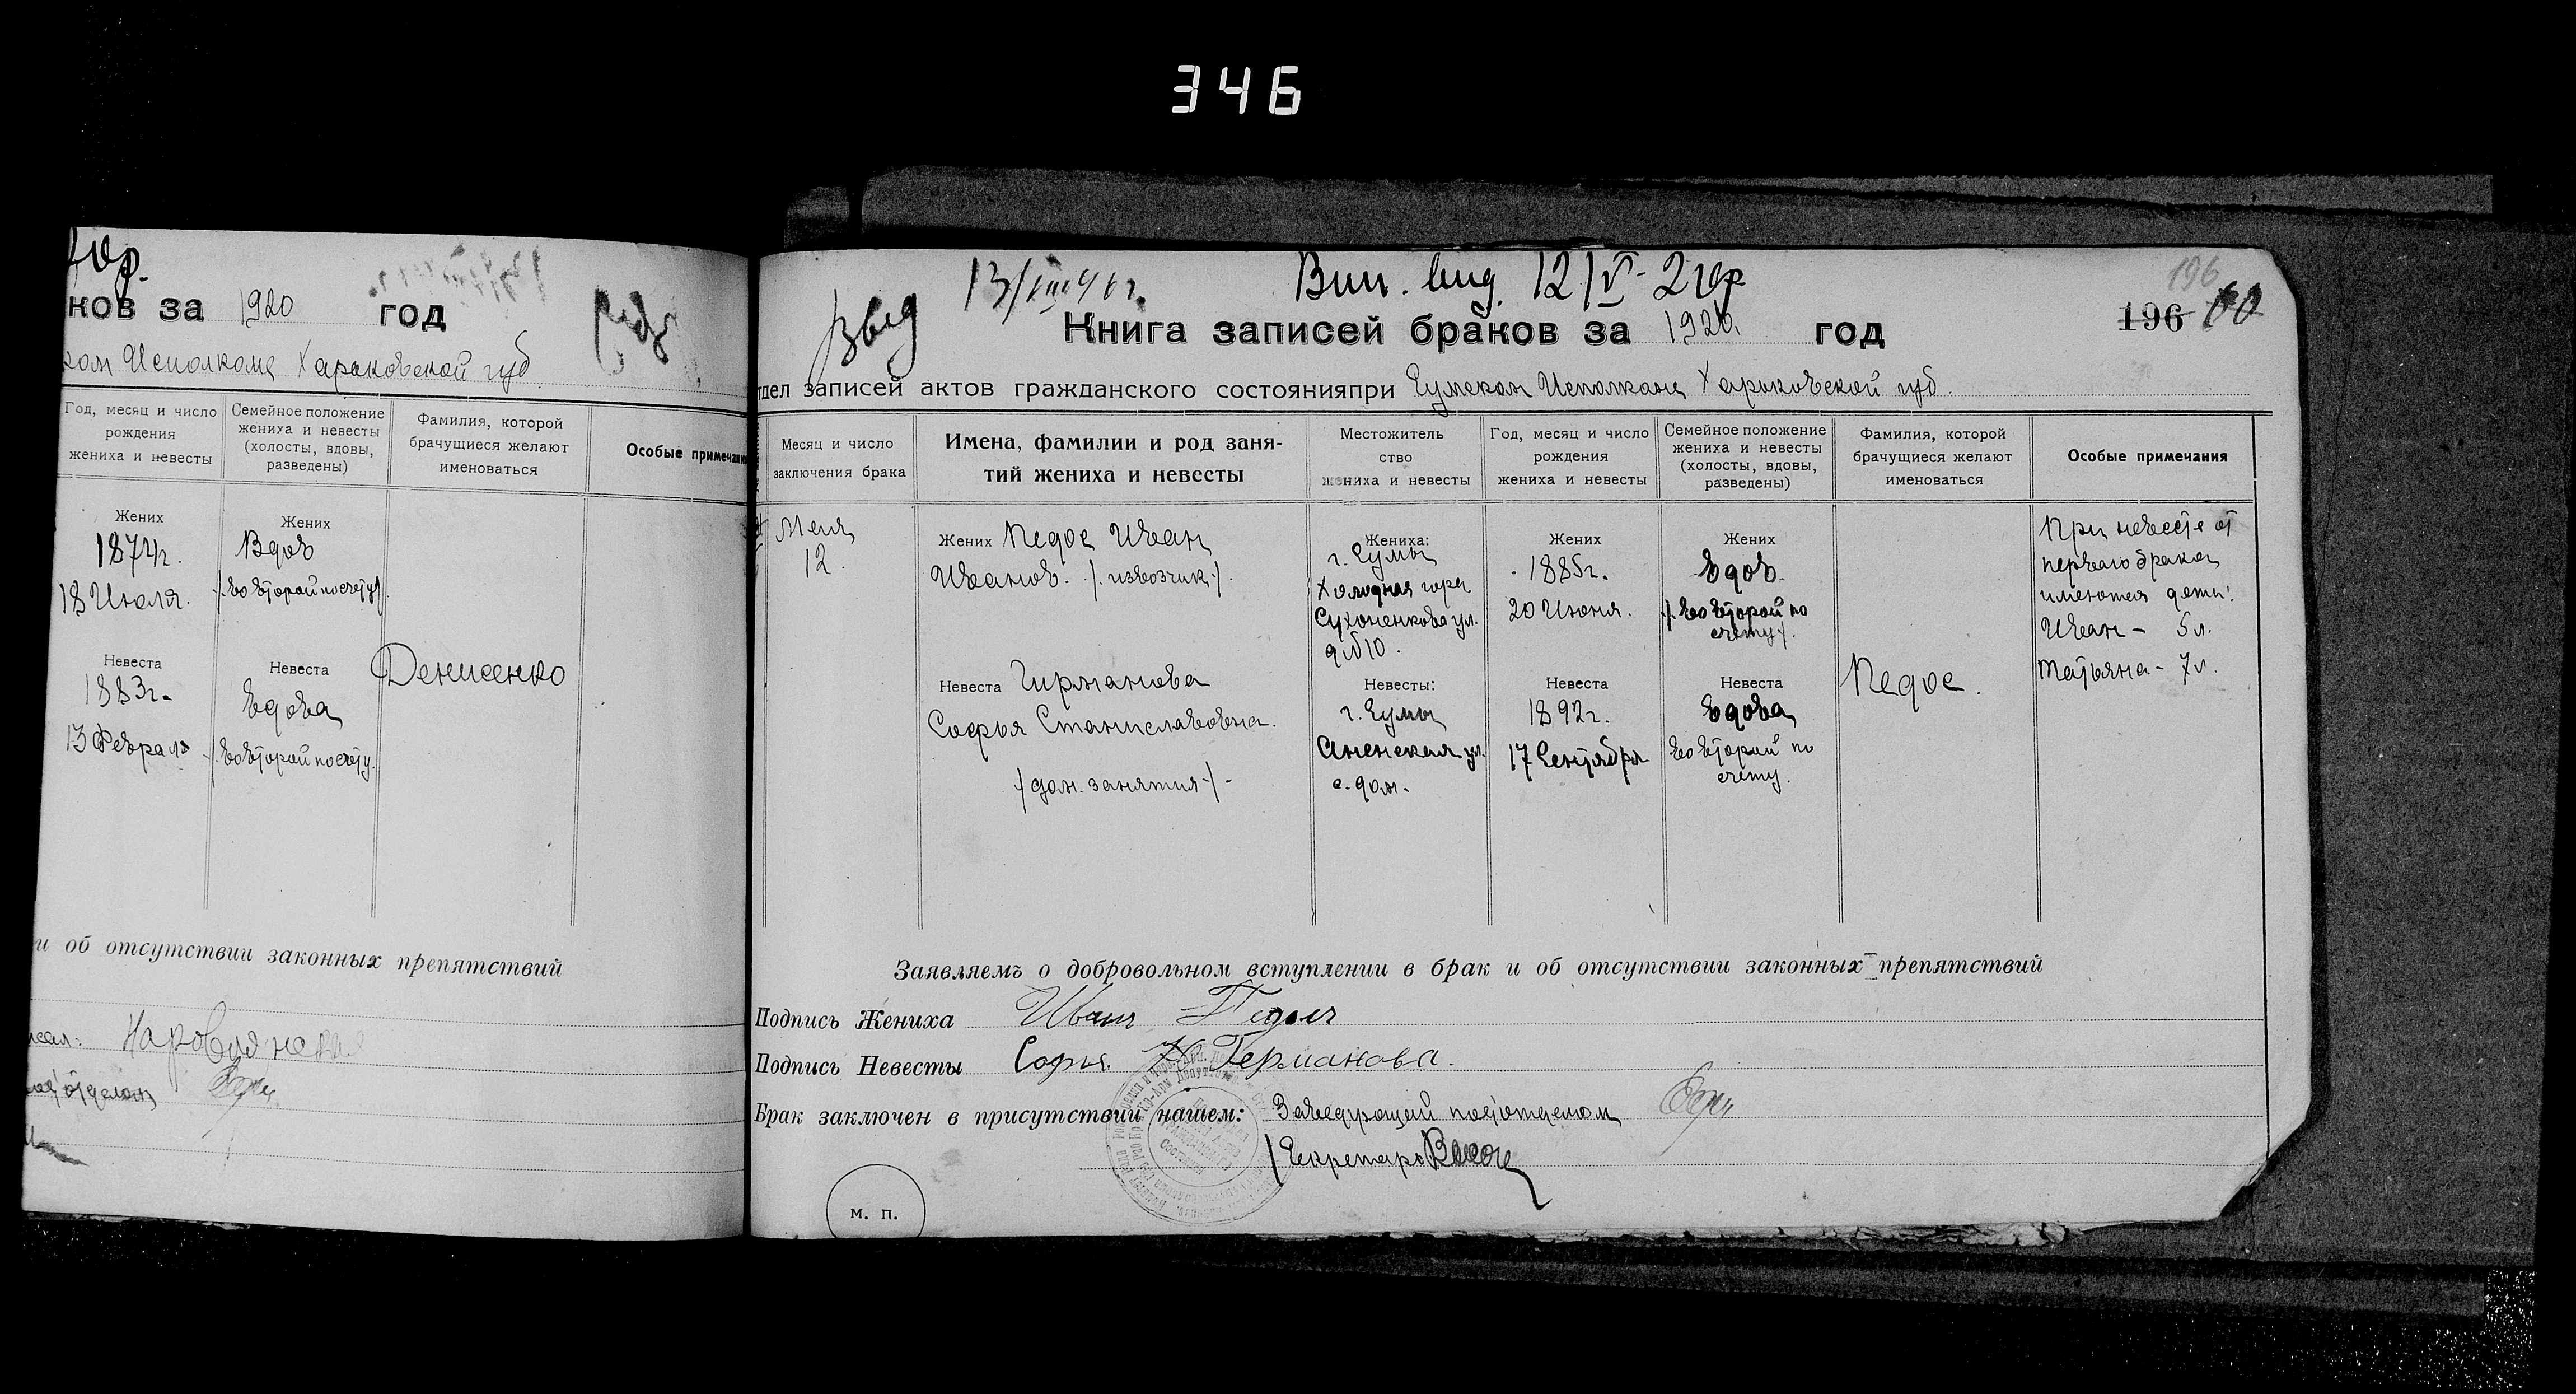 346
ков за 1920 год
ком Исполкоме Харьковской губ.
Год, месяц и число рождения жениха и невесты
Семейное положение жениха и невесты (холосты, вдовы, разведены)
Фамилия, которой брачущиеся желают именоваться
Особые примечания
Жених
1874г.
18 Июля.
Жених
Вдов
/. во второй по счету/.
Невеста
1883г.
13 Февраля
Невеста
вдова
/. во второй по счету.
Денисенко
и об отсутствии законных препятствий
196
196 60
13/VIII 41 г.
12/V - 21 г.
Книга записей браков за 1920. год
тдел записей актов гражданского состоянияпри Сумском Исполкоме Харьковской губ.
Месяц и число заключения брака
Имена, фамилии и род занятий жениха и невесты
Местожительство жениха и невесты
Год, месяц и число рождения жениха и невесты
Семейное положение жениха и невесты (холосты, вдовы, разведены)
Фамилия, которой брачущиеся желают именоваться
Особые примечания
Мая
12.
Жених Педос Иван
Иванов. /. извозчик ./.
Невеста Гирманова
Софья Станиславовна.
/дом. занятия/-
Жениха:
г. Сумы
Холодная гора
Сухоненкова ул.
д №10.
Невесты:
г. Сумы
Аненская ул.
с. дом.
Жених
1885г.
20 Июня.
Невеста
1892г.
17 Сентября
Жених
вдов.
/. во второй по
счету/.
Невеста
вдова
во второй по
счету.
Педос.
При невесте от
первого брака
имеются дети:
Иван - 5л.
Татьяна - 7л.
Заявляемъ о добровольном вступлении в брак и об отсутствии законных препятствий
Подпись Жениха Иван Педос
Подпись Невесты Софья Германова.
Брак заключен в присутствии нашем: Заведующей подотделом
/Секретарь
м. п.